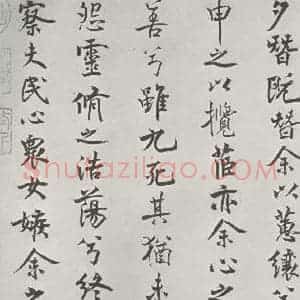 夕替既替余以蕙纕兮
申之以攬茝亦余心之
善兮雖九死其猶未
怨靈脩之浩蕩兮終
察夫民心衆女嫉余之
Shufaziliao.COM